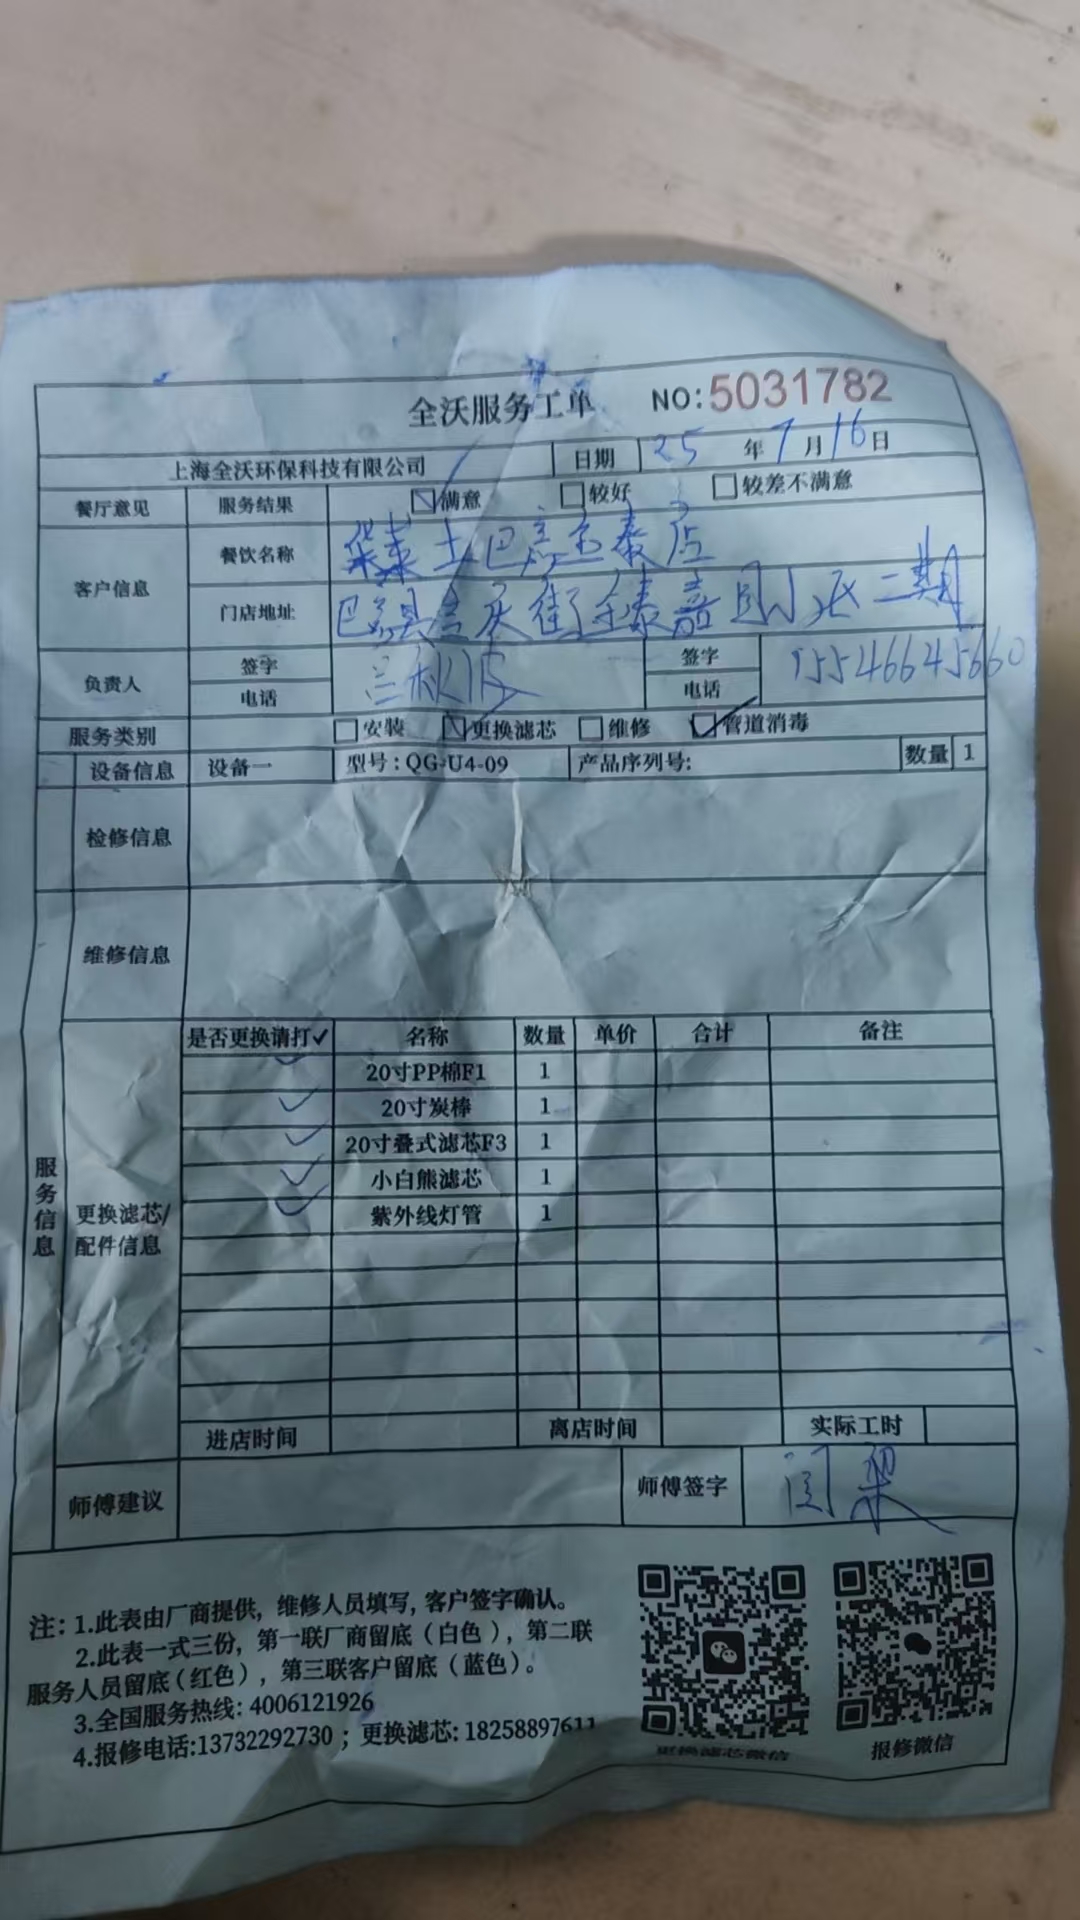 全沃服务工单 NO:5031782
上海全沃环保科技有限公司 日期 25年7月16日
餐厅意见 服务结果 满意 较好 较差不满意
客户信息 餐饮名称 华莱士巴彦金泰店
门店地址 巴彦县 街金泰嘉园小区二期
负责人 签字 兰秋波 签字
电话 电话 15546645660
服务类别 安装 更换滤芯 维修 管道消毒
设备信息 设备一 型号:QG-U4-09 产品序列号: 数量 1
检修信息
维修信息
服务信息
更换滤芯/配件信息
是否更换请打✓ 名称 数量 单价 合计 备注
✓ 20寸PP棉F1 1
✓ 20寸炭棒 1
✓ 20寸叠式滤芯F3 1
✓ 小白熊滤芯 1
✓ 紫外线灯管 1
进店时间 离店时间 实际工时
师傅建议 师傅签字 闫
注: 1.此表由厂商提供, 维修人员填写, 客户签字确认。
2.此表一式三份, 第一联厂商留底(白色), 第二联
服务人员留底(红色), 第三联客户留底(蓝色)。
3.全国服务热线: 4006121926
4.报修电话:13732292730 ; 更换滤芯: 18258897611
更换滤芯微信 报修微信